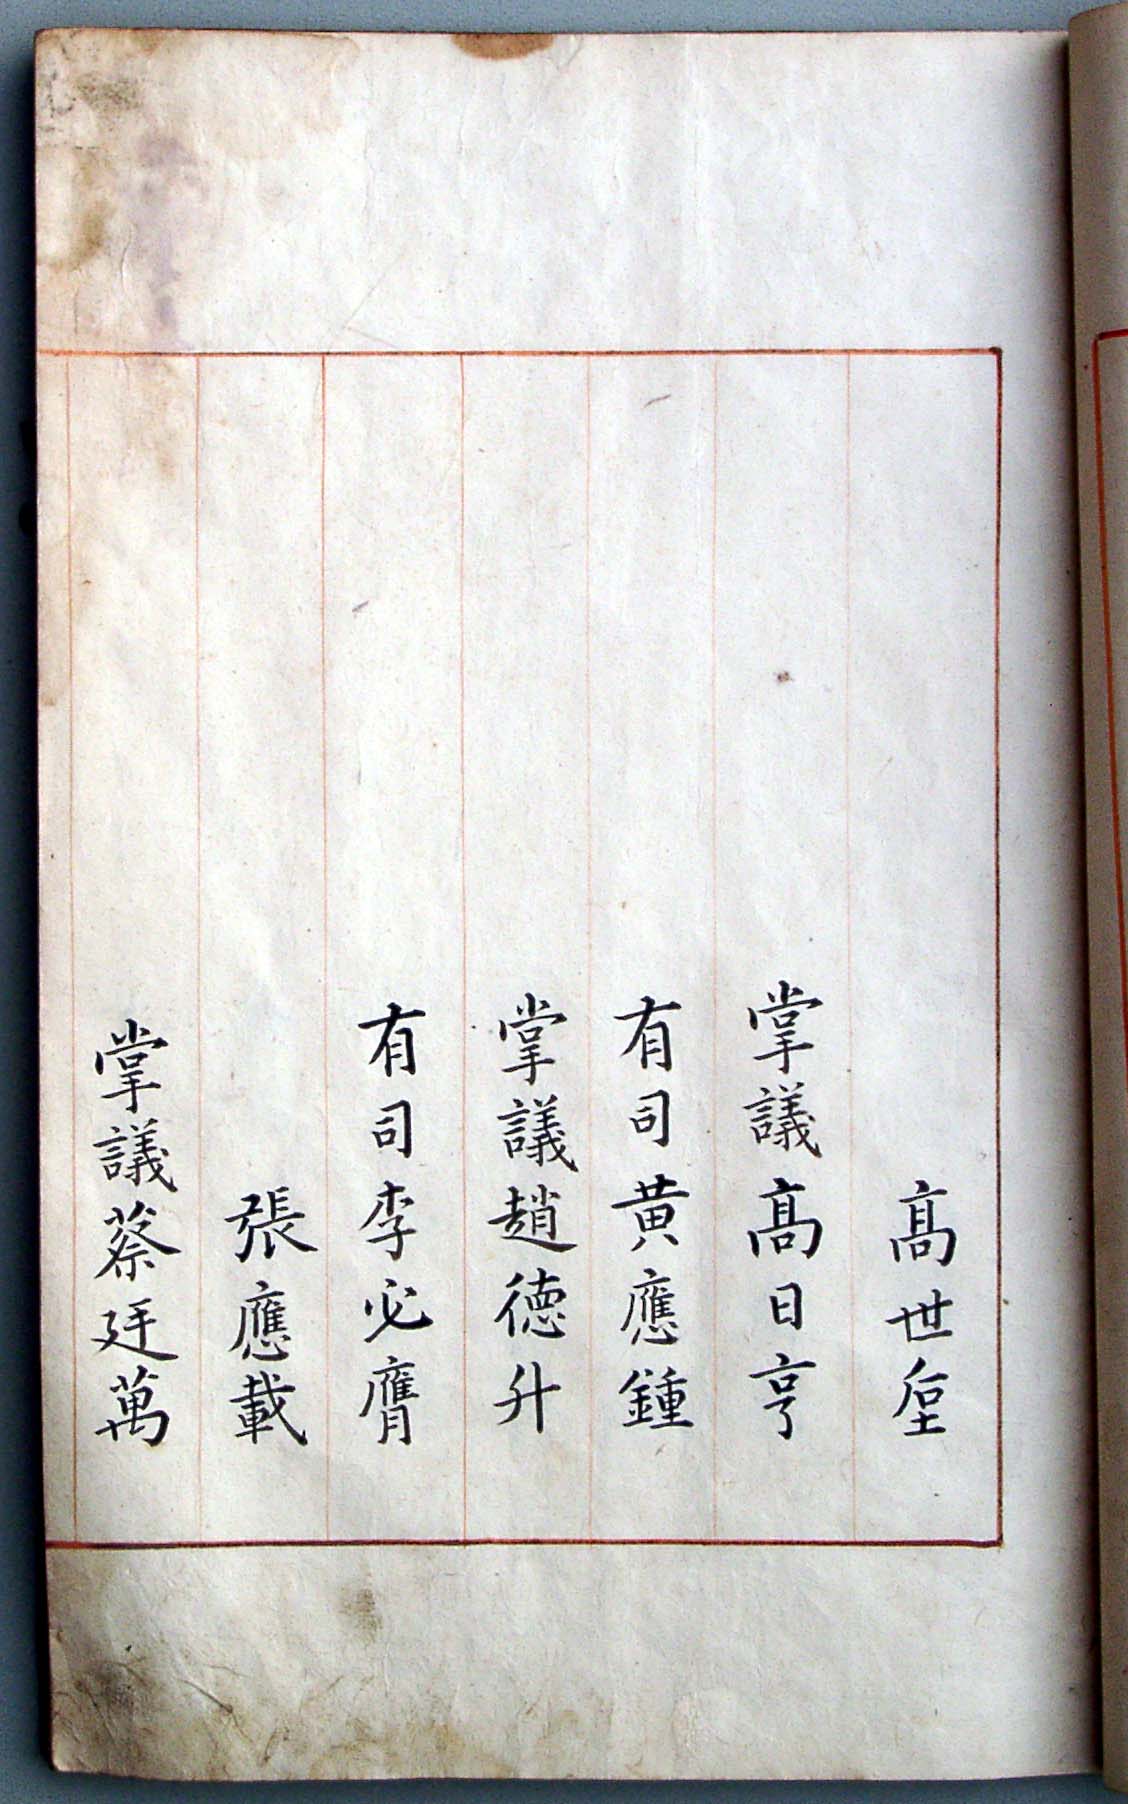 髙世垕
掌議髙日亨
有司黄應鍾
掌議趙德升
有司李必膺
張應載
掌議蔡廷萬